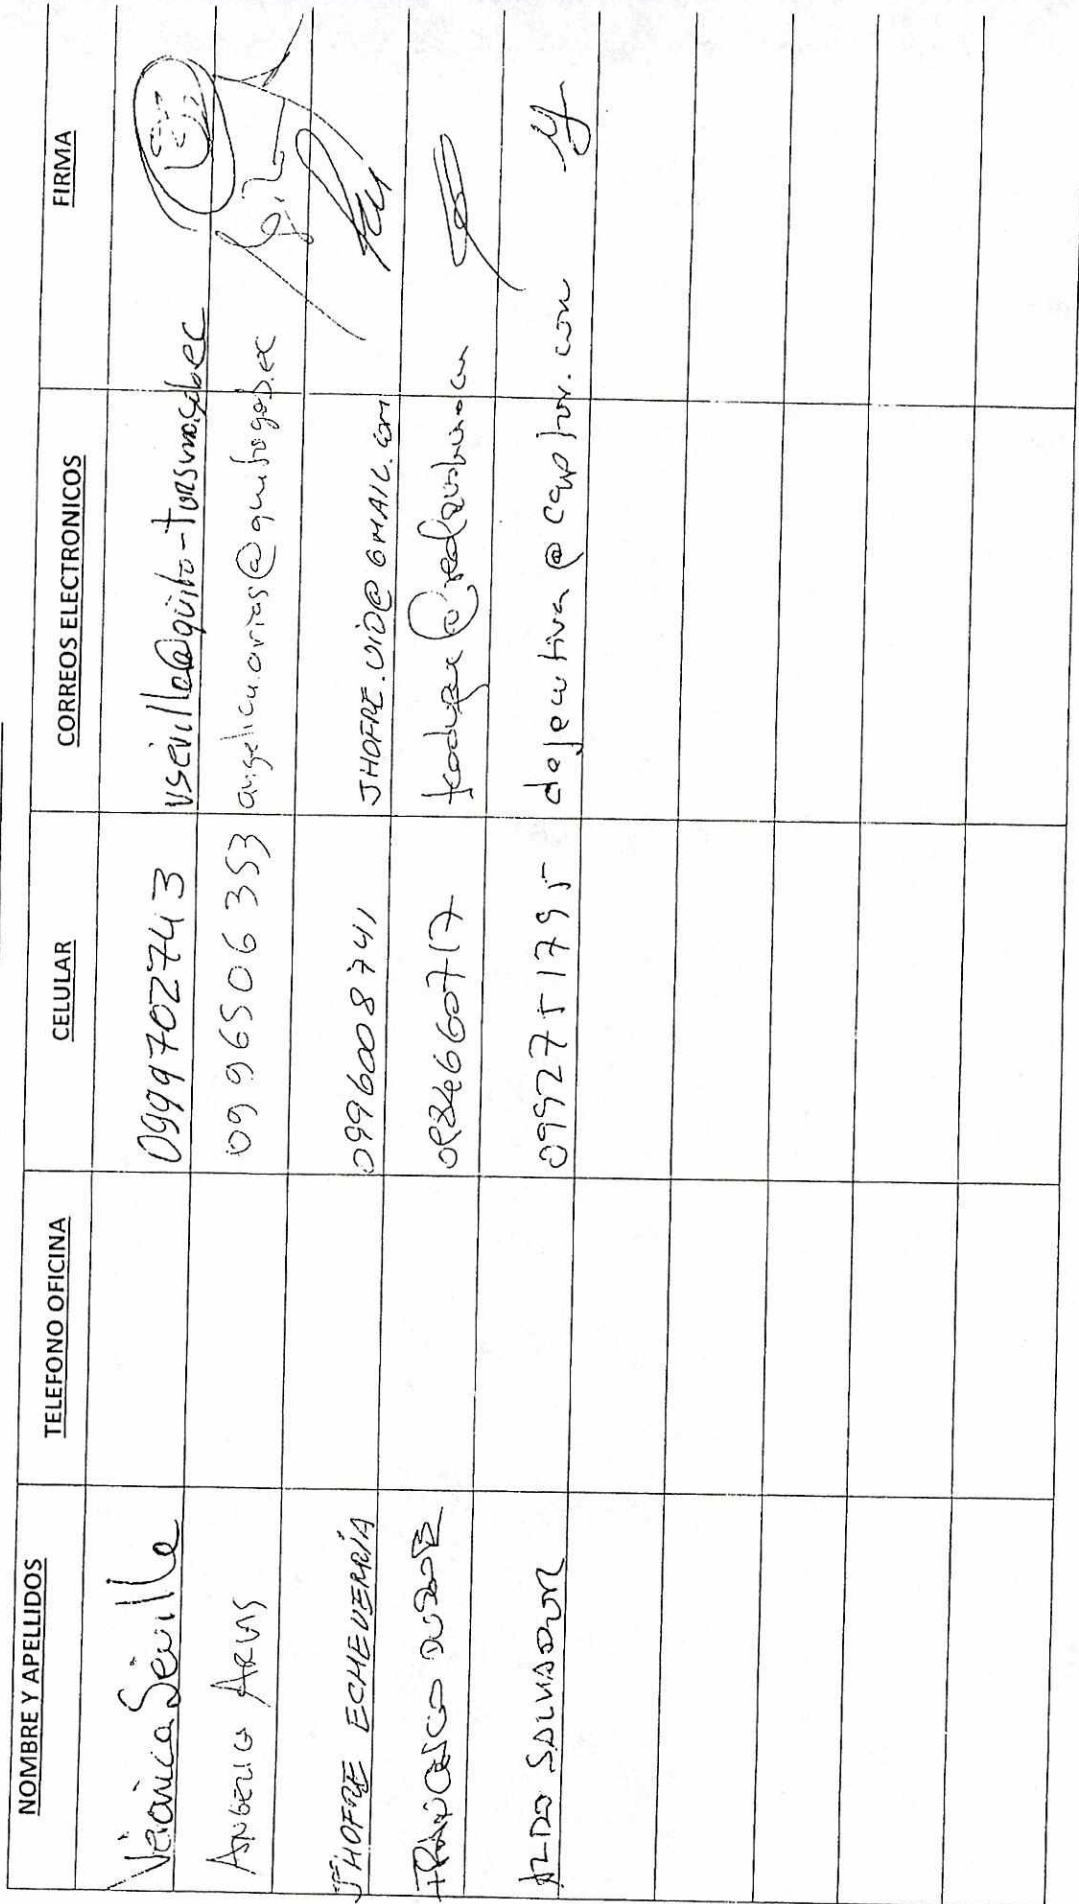 NOMBRE Y APELLIDOS TELEFONO OFICINA CELULAR CORREOS ELECTRONICOS FIRMA
Verónica Sevilla 0999702743 vsevilla@quito-turismo.gob.ec
ANGELICA ARIAS 0996506353 angelica.arias@quito.gob.ec
JHOFRE ECHEVERRÍA 0996008741 JHOFRE.UIO@GMAIL.com
FRANCISCO
ALDO SALVADOR 0992751795 dejecutiva@captur.com